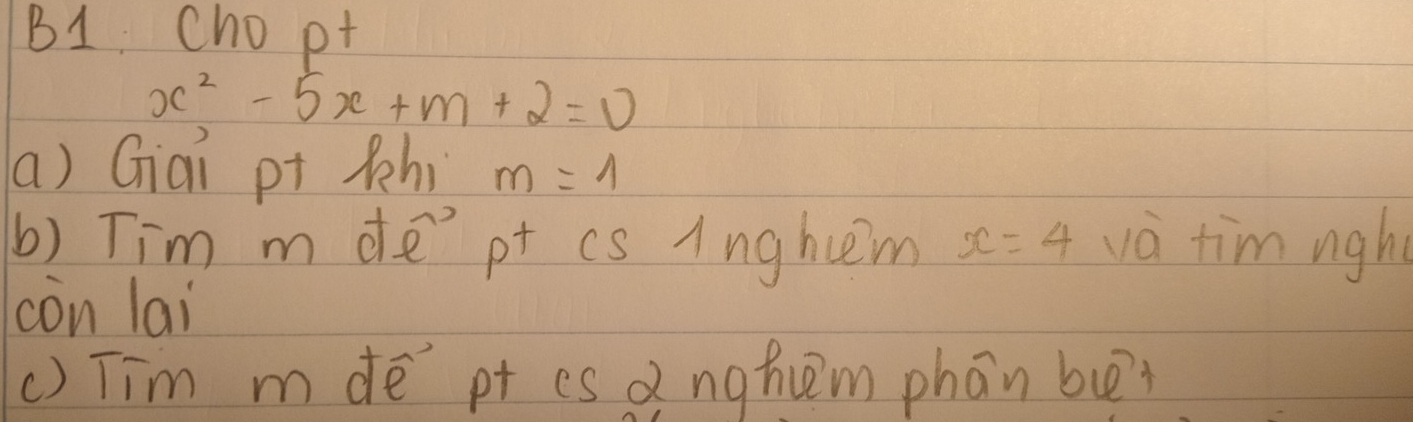 B1. Cho pt
x² - 5x + m + 2 = 0
a) Giải pt khi m = 1
b) Tìm m để pt cs 1 nghiệm x = 4 và tìm
còn lại
c) Tìm m để pt cs 2 nghiệm phân biệt